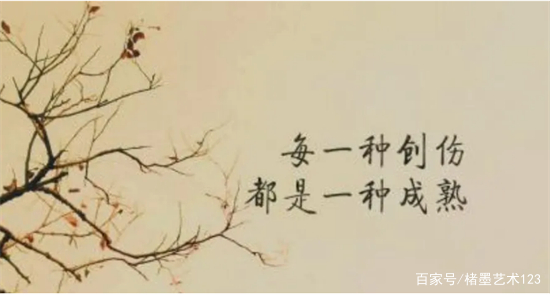 每一种创伤
都是一种成熟
百家号/楮墨艺术123